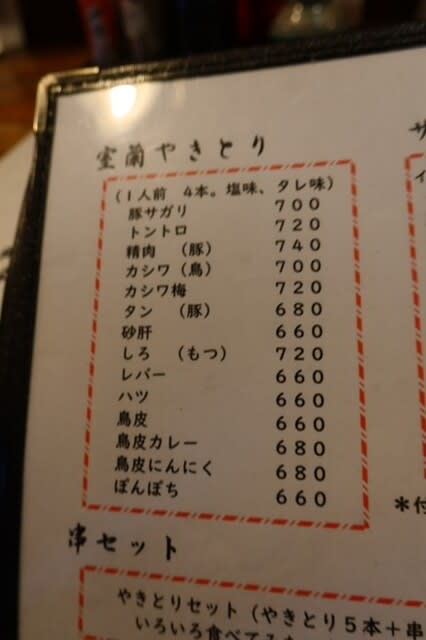 室蘭やきとり
(1人前 4本。塩味、タレ味)
豚サガリ 700
トントロ 720
精肉 (豚) 740
カシワ(鳥) 700
カシワ梅 720
タン (豚) 680
砂肝 660
しろ (もつ) 720
レバー 660
ハツ 660
鳥皮 660
鳥皮カレー 680
鳥皮にんにく 680
ぽんぽち 660
串セット
やきとりセット(やきとり5本+串
いろいろ食べ
*付